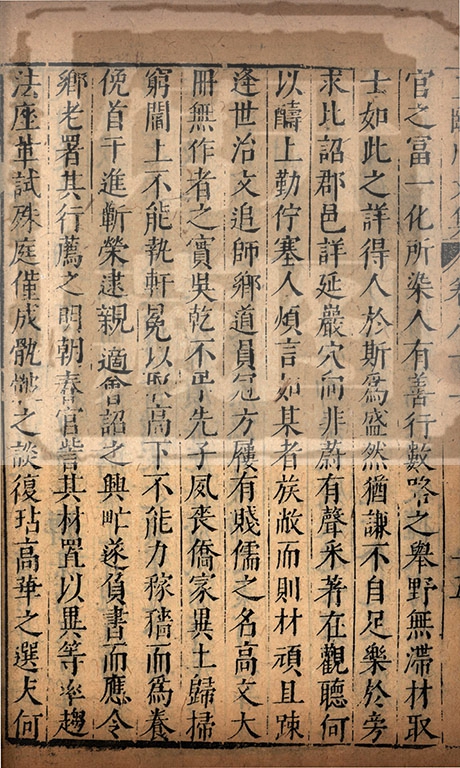 官之富一化所染人有善行數路之舉野無滯材取
士如此之詳得人於斯爲盛然猶謙不自足樂於旁
求比詔郡邑詳延巖穴向非蔚有聲釆著在觀聽何
以醻上勤佇塞人煩言如某者族敝而則材頑且踈
逢世治文追師鄉道員冠方屨有賤儒之名高文大
冊無作者之實吳乾不弔先子夙喪僑家異土歸掃
窮閻上不能執軒冕以取高下不能力稼穡而爲養
俛首干進蘄榮逮親適會詔之興甿遂負書而應令
鄉老署其行薦之明朝春官訾其材置以異等率趨
法座革試殊庭僅成骫骳之談復玷高華之選夫何